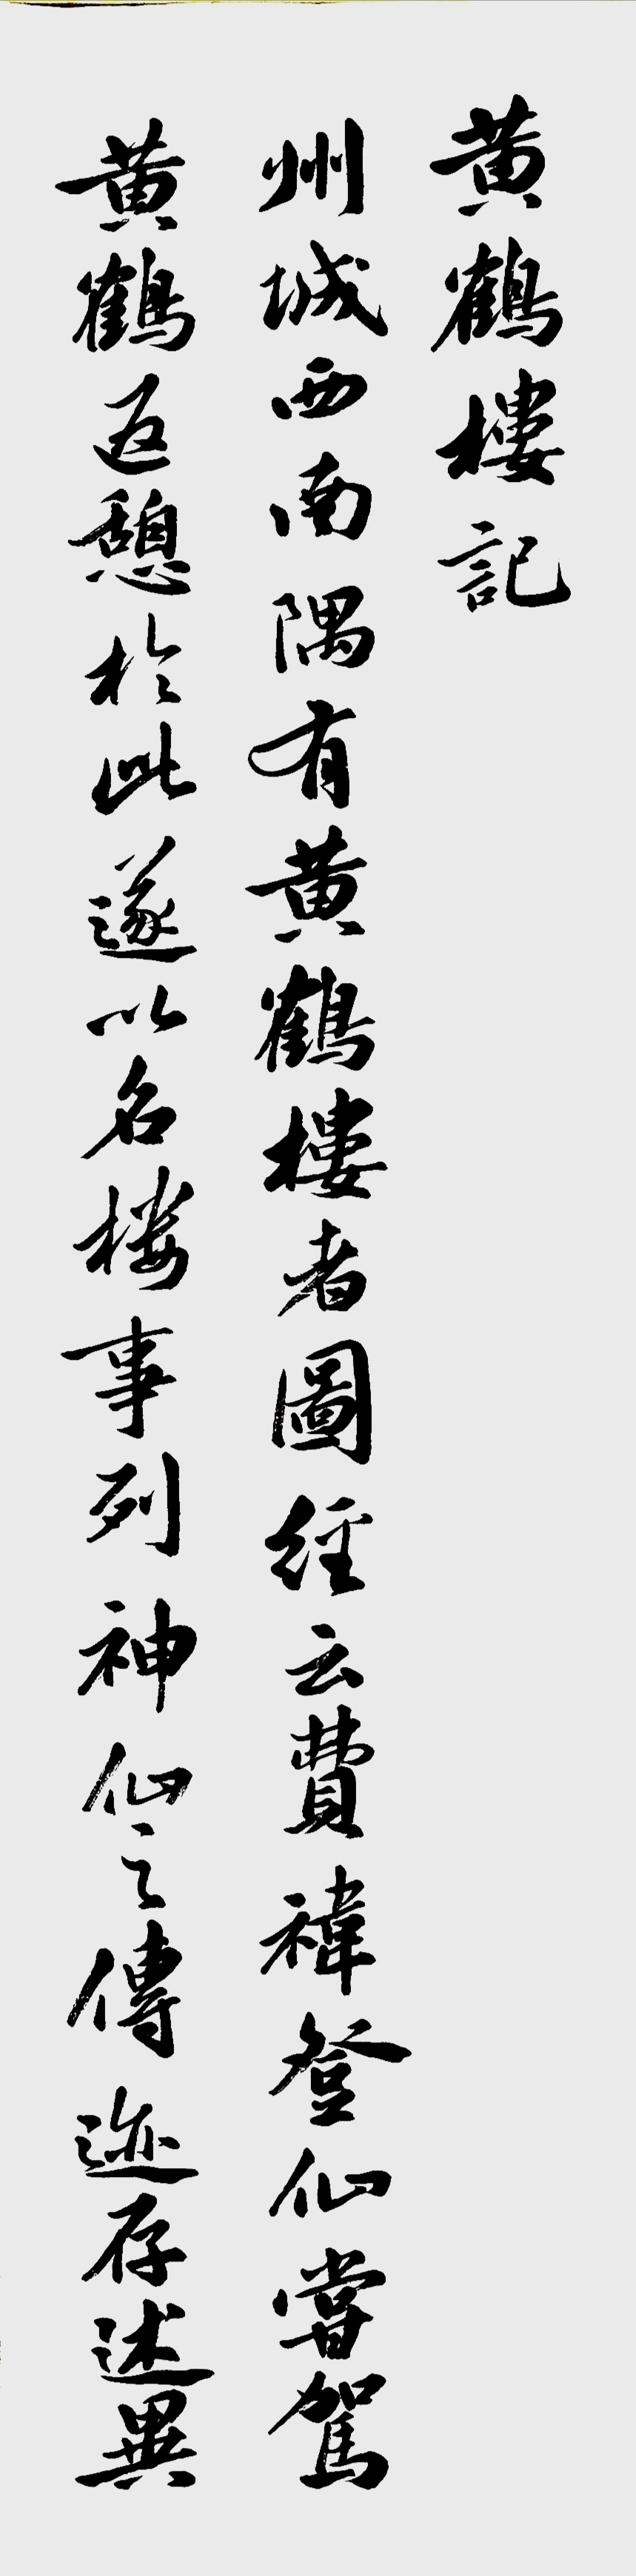 黄鶴樓記
州城西南隅有黄鶴樓者圖經云費禕登仙嘗駕
黄鶴返憩於此遂以名楼事列神仙之傳迹存述異